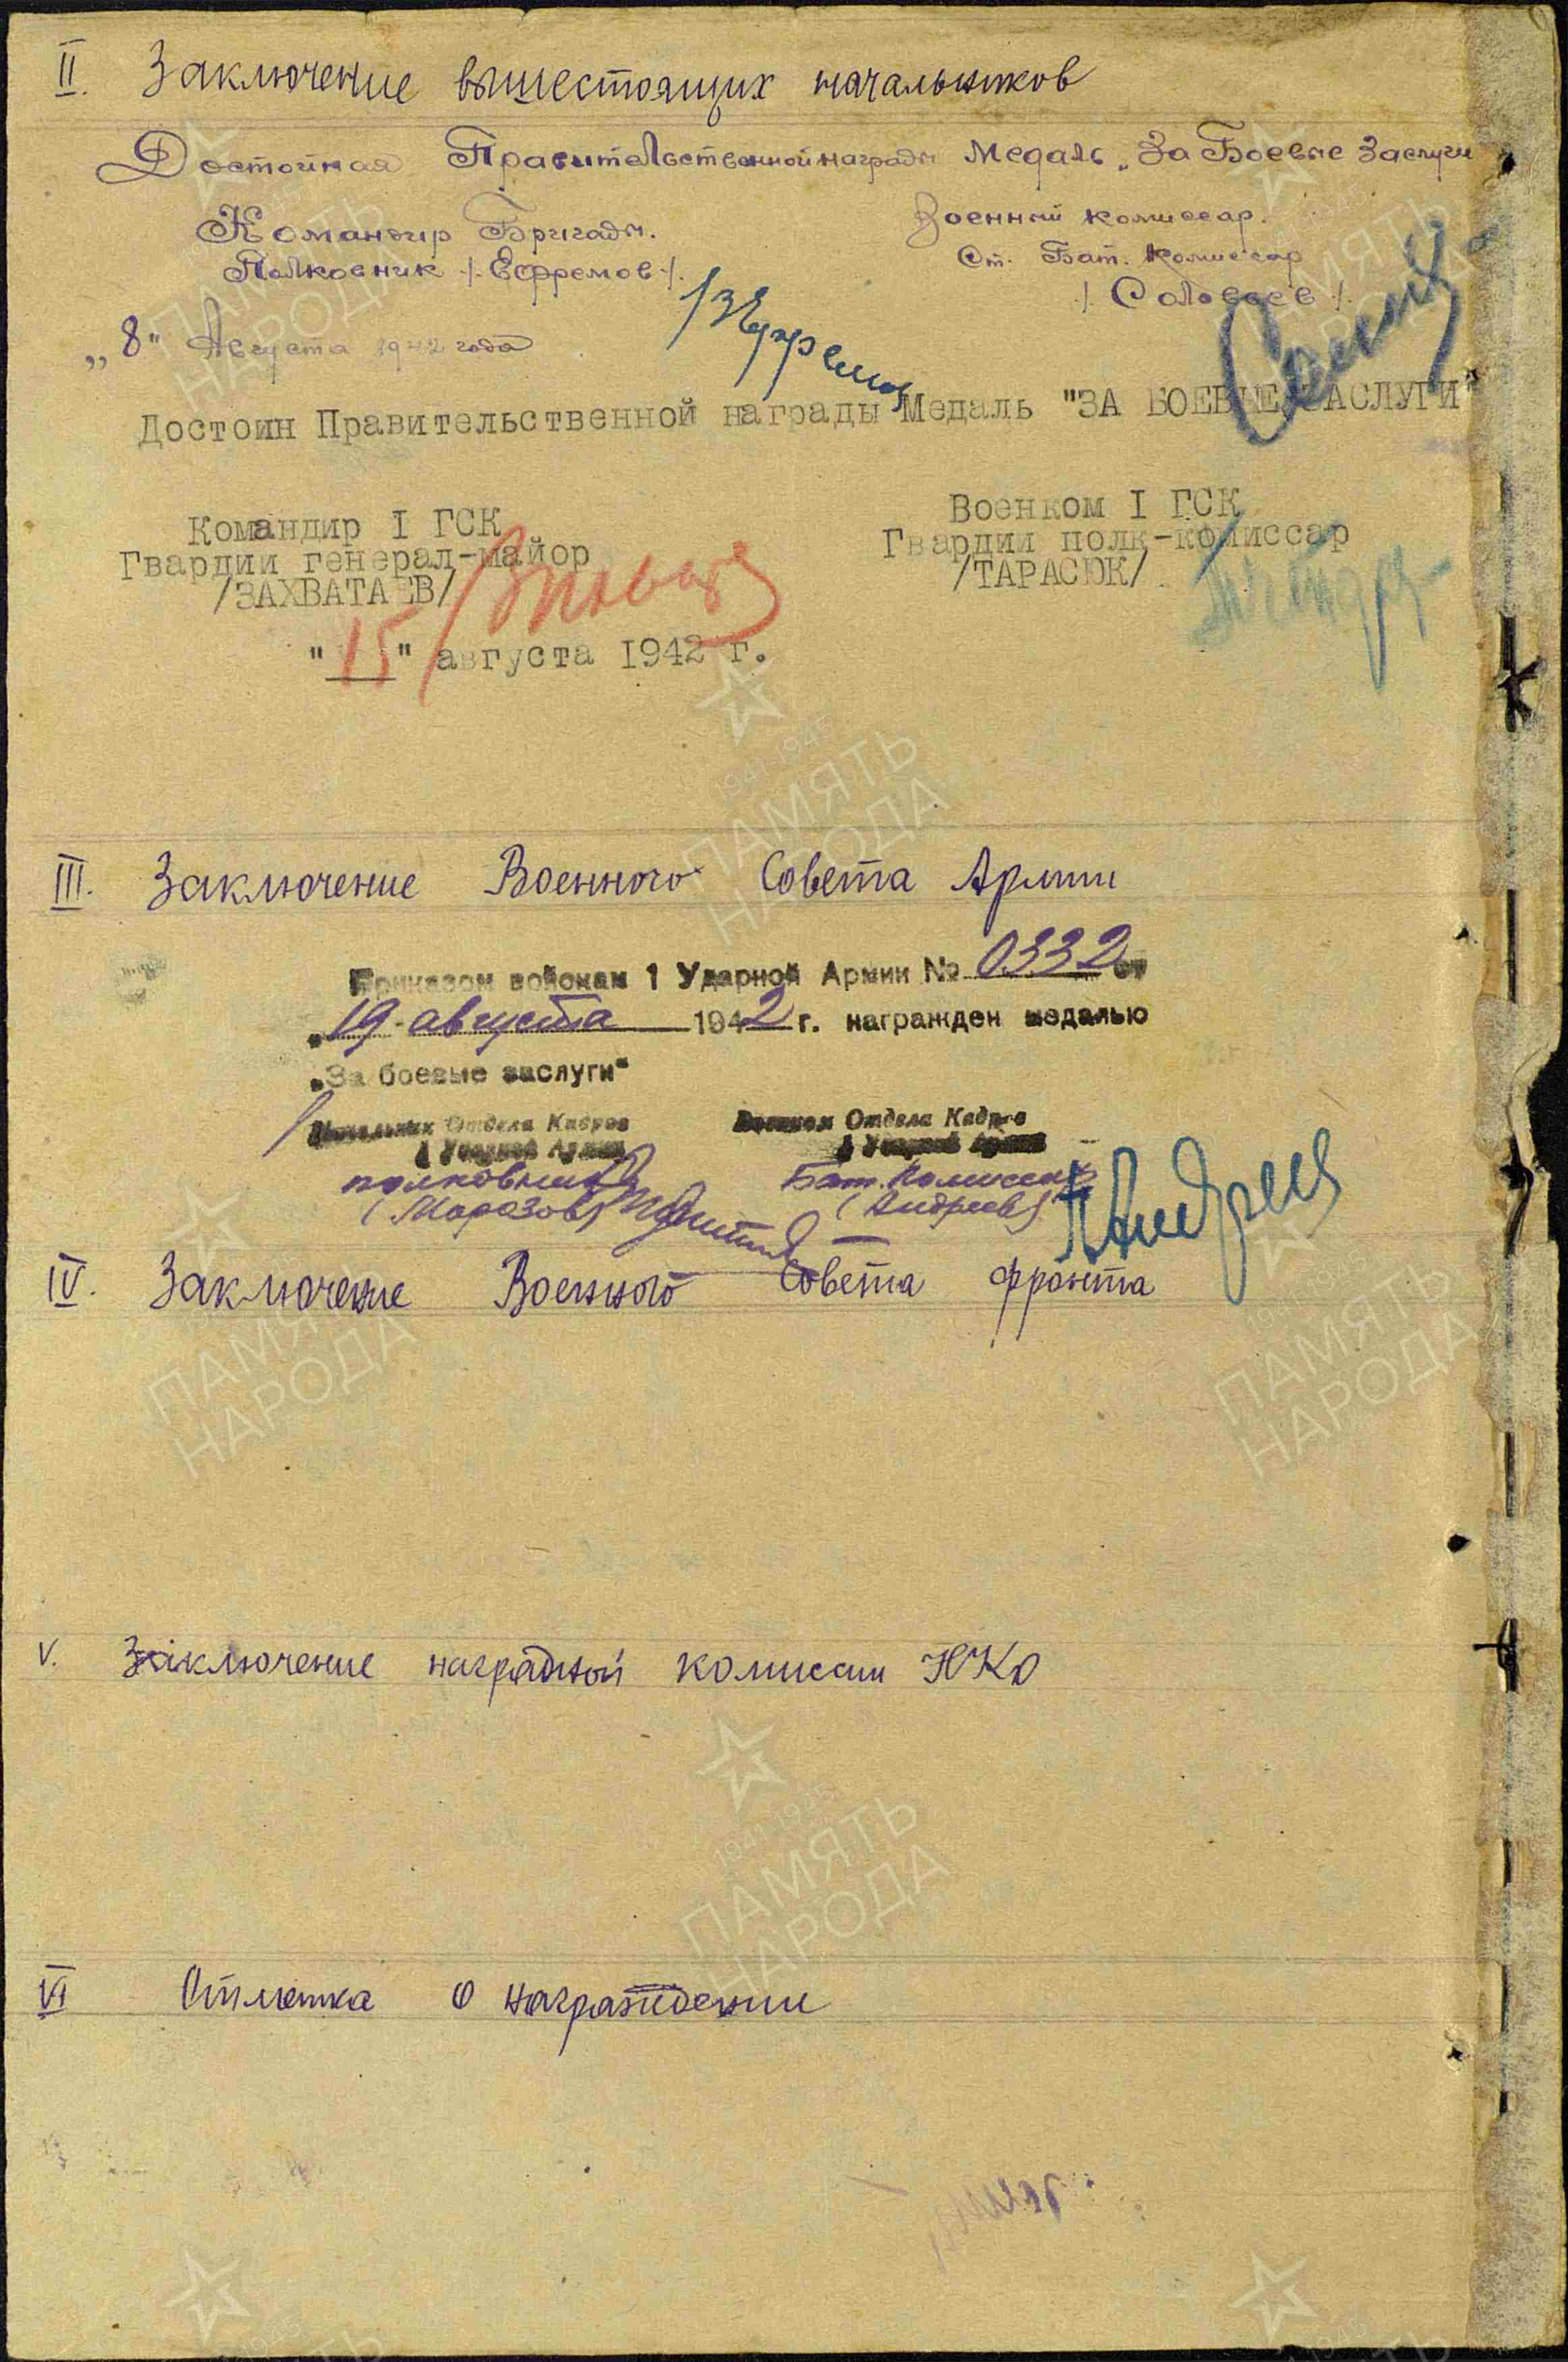 II. Заключение вышестоящих начальников
Достойная Правительственной награды Медаль „За Боевые Заслуги
Командир Бригады. Военный комиссар.
Полковник /. Ефремов /. Ст. Бат. Комиссар
/. Соловьев /.
„8" Августа 1942 года
Достоин Правительственной награды Медаль "ЗА БОЕВЫЕ ЗАСЛУГИ"
Командир I ГСК Военком I ГСК
Гвардии генерал-майор Гвардии полк-комиссар
/ЗАХВАТАЕВ/ /ТАРАСЮК/
"15" августа 1942 г.
III. Заключение Военного Совета Армии
Приказом войскам 1 Ударной Армии № 0332 от
„19 августа 1942 г. награжден медалью
„За боевые заслуги"
Начальник Отдела Кадров Военком Отдела Кадров
1 Ударной Армии 1 Ударной Армии
полковник Бат. Комиссар
(Морозов) (Андреев)
IV. Заключение Военного Совета фронта
V. Заключение наградной комиссии НКО
VI Отметка о награждении
ПАМЯТЬ
НАРОДА
1941-1945